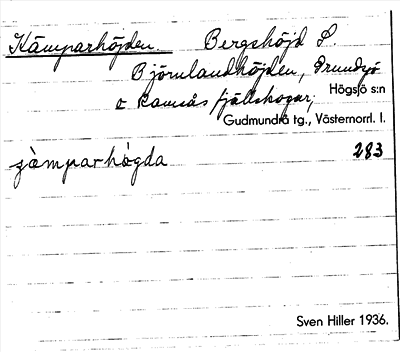 Kämparhöjden. Bergshöjd S.
Björnlandhöjden, Grundsjö
o Ramsås fjällskogar;
Högsjö s:n
Gudmundrå tg., Västernorrl. l.
283
Sven Hiller 1936.